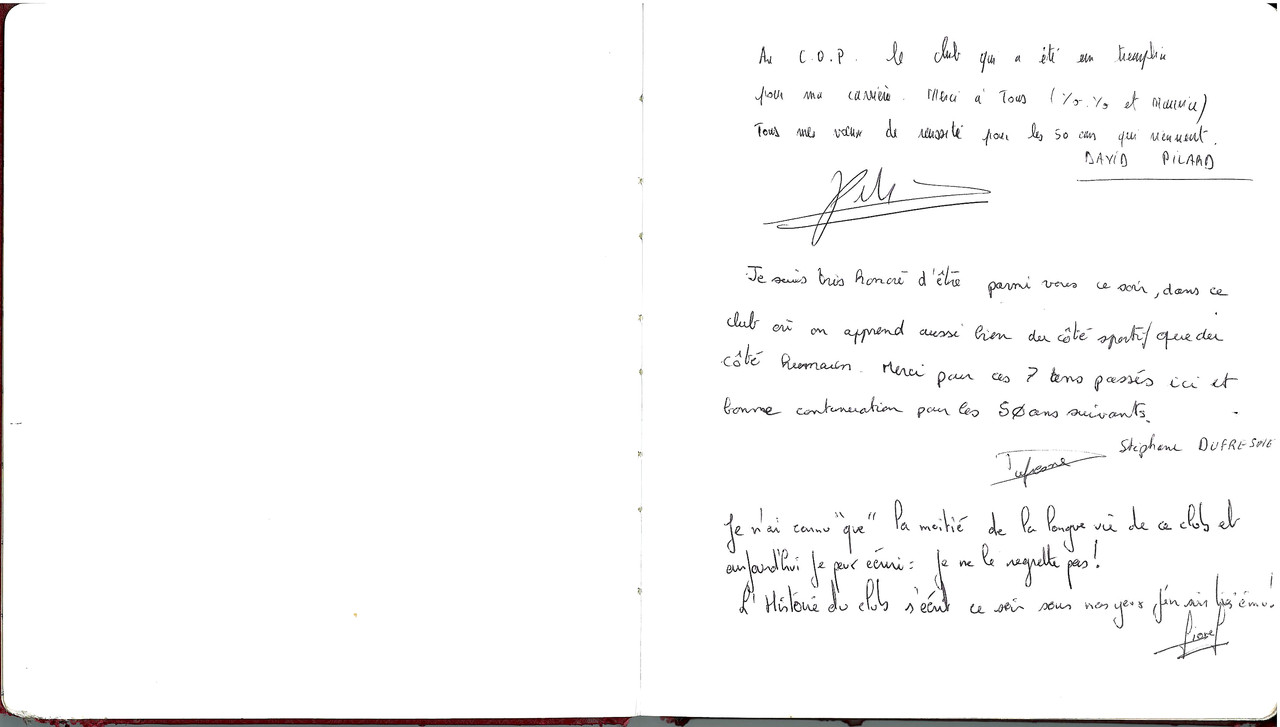 Au C.O.P. le club qui a été un tremplin
pour ma carrière. Merci à Tous ( et Maurice)
Tous mes vœux de réussite pour les 50 ans qui viennent.
DAVID PILARD
Je suis très honoré d'être parmi vous ce soir, dans ce
club où on apprend aussi bien du côté sportif que du
côté humain. Merci pour ces 7 ans passés ici et
bonne continuation pour les 50 ans suivants.
Stéphane DUFRESNE
Dufresne
Je n'ai connu "que" la moitié de la longue vie de ce club et
aujourd'hui je peux écrire : je ne le regrette pas !
L'Histoire du club s'écrit ce soir sous nos yeux j'en suis très ému.